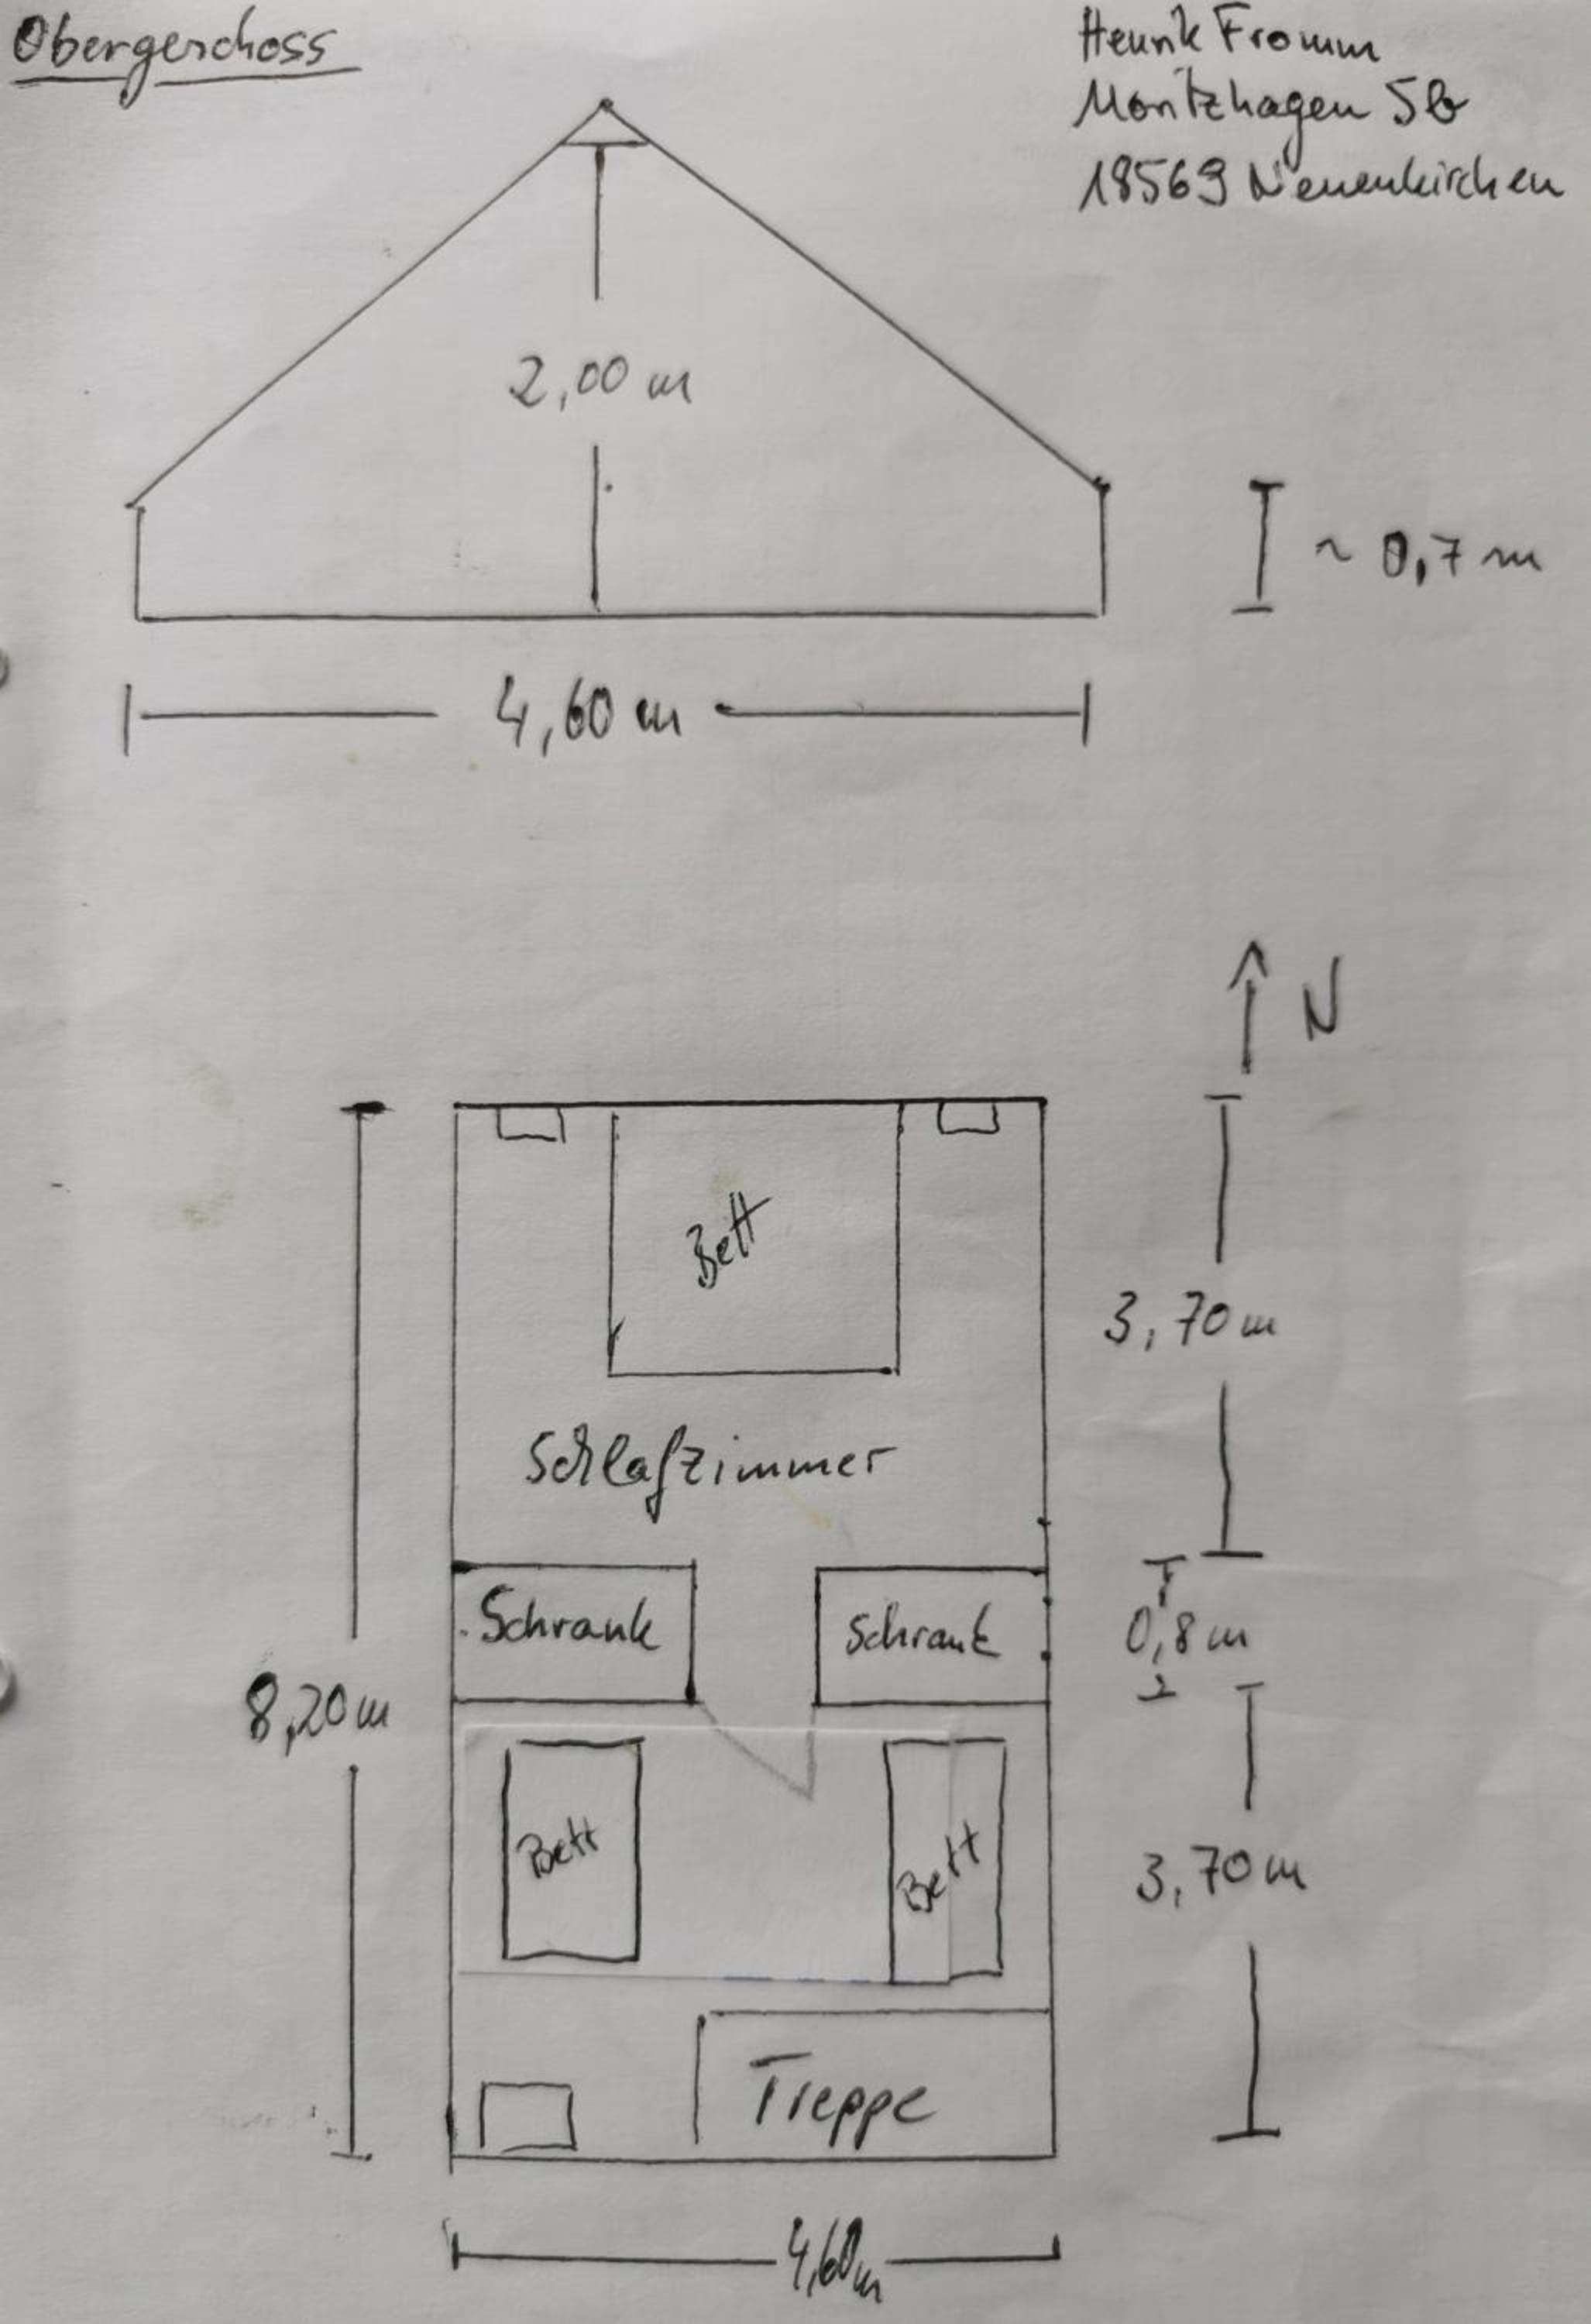 Obergeschoss
Henrik Fromm
Moritzhagen 5b
18569 Neuenkirchen
2,00 m
~ 0,7 m
4,60 m
N
Bett
3,70 m
Schlafzimmer
Schrank
Schrank
0,8 m
8,20 m
Bett
Bett
3,70 m
Treppe
4,60 m